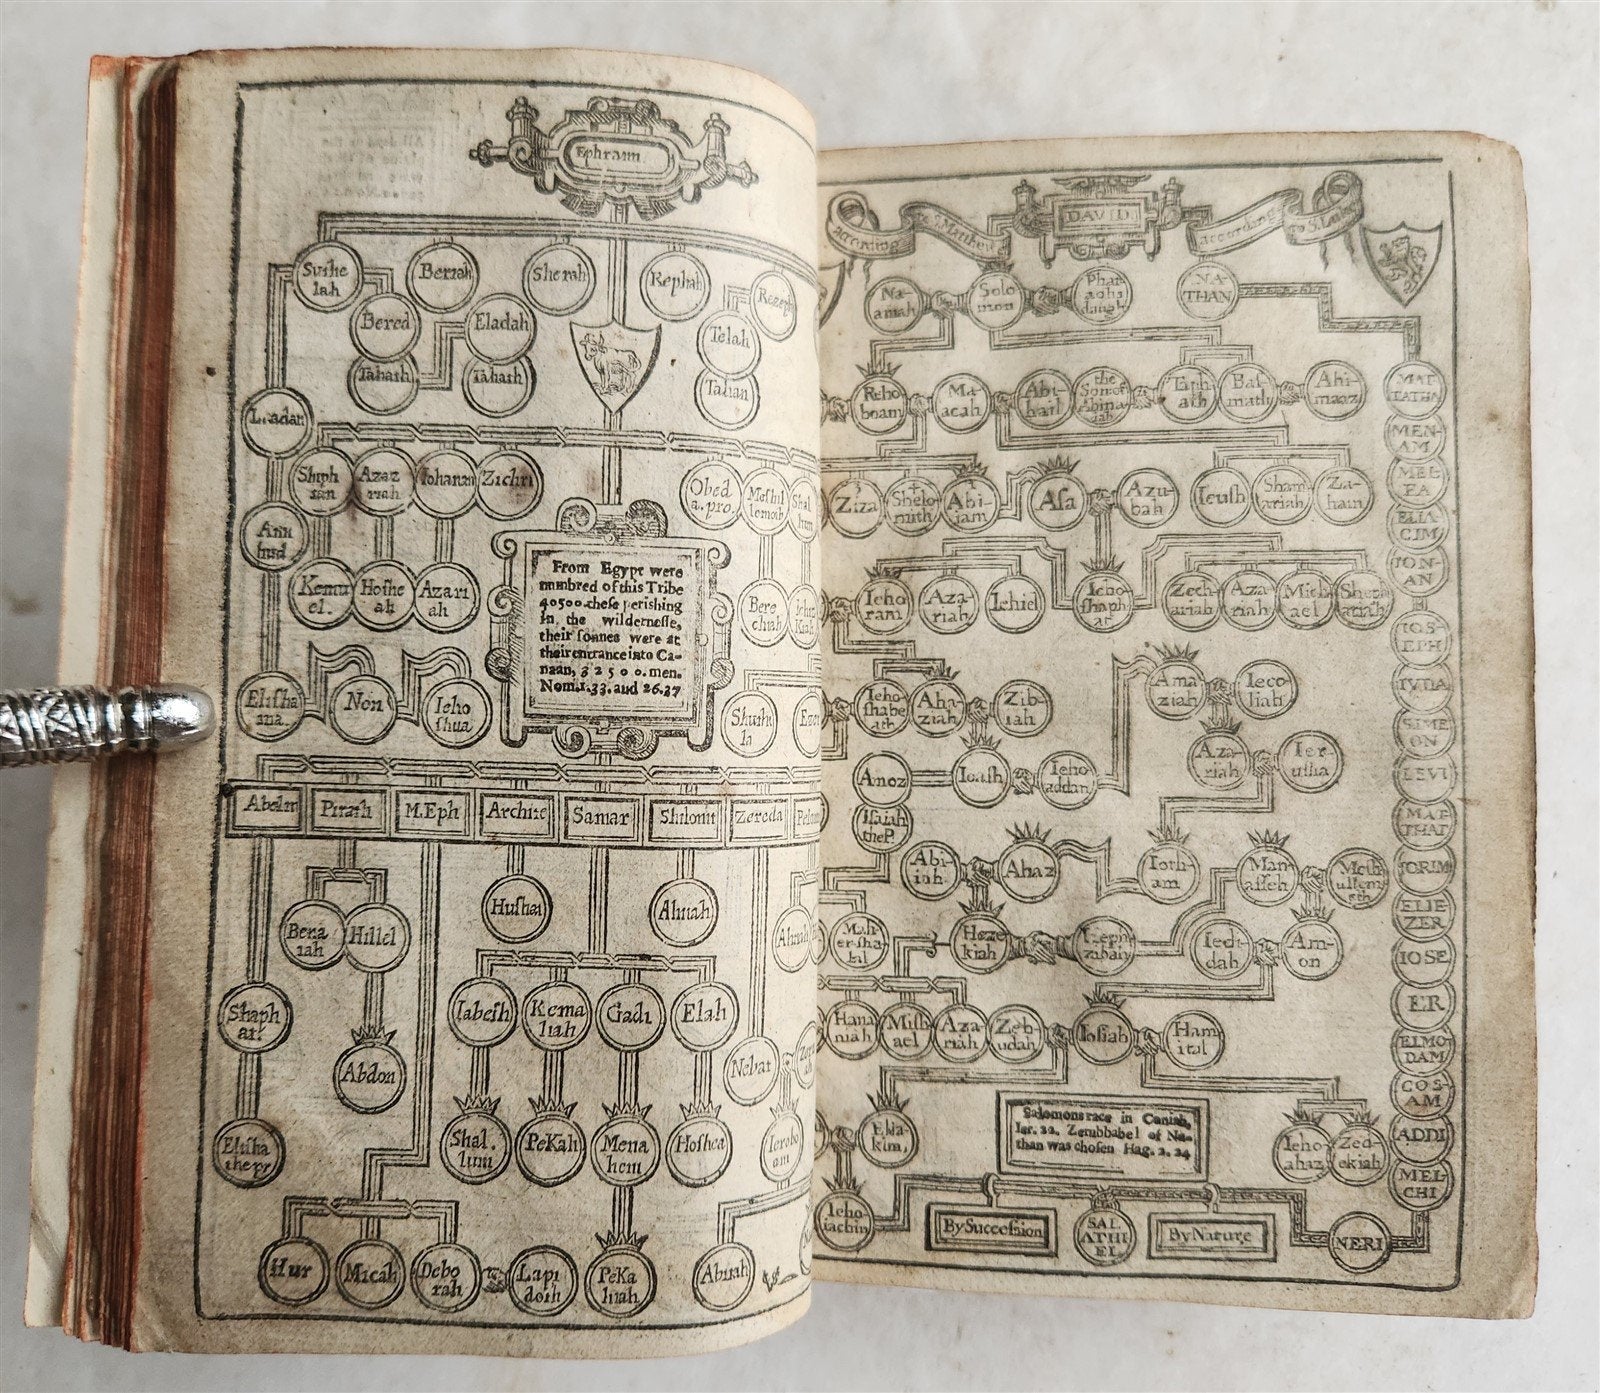 Ephraim.
Suthe
lah
Beriah
Sherah
Rephah
Rezeph
Bered
Eladah
Telah
Tahath
Tahath
Tahan
Laadan
Shiph
tan
Azaz
riah
Iohanan
Zichri
Obed
a.pro.
Meshil
lemoth
Shal
lum
Ammi
hud
Kemu
el.
Hoshe
ah
Azari
ah
Bere
chiah
From Egypt were
numbred of this Tribe
40500.these perishing
in the wildernesse,
their sonnes were at
their entrance into Ca-
naan, 32500. men.
Nom.1.33. and 26.37
Elisha
ma.
Non
Ieho
shua
Shuthe
la
Ezer
Abelm
Pirath
M.Eph
Archite
Samar
Shilonit
Zereda
Hushai
Ahiiah
Bena
iah
Hillel
Shaph
at.
Iabesh
Rema
liah
Gadi
Elah
Abdon
Nebat
Elisha
the pr
Shal.
lum
PeKah
Mena
hem
Hoshea
Ierobo
am
Hur
Micah
Debo
rah
Lapi
doth
PeKa
hiah
Abiiah
according
to S. Matthew
DAVID
according
to S. Luke
Na-
amah
Solo
mon
Phar
aohs
daugh
NA-
THAN
Reho
boam
Ma-
acah
Abi-
hail
the
Son of
Abina-
dab
Taph
ath
Bas-
math
Ahi-
maaz
MAT-
TATHA
MEN-
AM
MEL-
EA
Ziza
Shelo-
mith
Abi-
iam
Asa
Azu-
bah
Ieush
Sham
ariah
Za-
ham
ELIA-
CIM
ION-
AN
Ieho
ram
Aza-
riah
Iehiel
Ieho-
shaph
at
Zech-
ariah
Aza-
riah
Mich
ael
Sheph
atiah
IOS-
EPH
Ieho-
shabe
ath
Aha-
ziah
Zib-
iah
Ama-
ziah
Ieco-
liah
IVDA
SIME
ON
Amoz
Ioash
Ieho-
addan
Azar-
iah
Ier-
usha
LEVI
Isaiah
the P.
MAT-
THAT
Abi-
iah
Ahaz
Ioth-
am
Man-
asseh
Mesh-
ullem
eth
IORIM
ELIE-
ZER
Mah-
er-sha-
lal
Heze
kiah
Heph
zibah
Iedi-
dah
Am-
on
IOSE
ER
Hana
niah
Mish
ael
Aza-
riah
Zeb-
udah
Iosiah
Ham
ital
ELMO-
DAM
COS-
AM
Elia-
kim
Salomons race in Coniah,
Ier. 22. Zerubbabel of Na-
than was chosen Hag. 2. 24
Ieho-
ahaz
Zed-
ekiah
ADDI
MEL-
CHI
Ieho
iachin
By Succession
SAL
ATHI
EL
By Nature
NERI